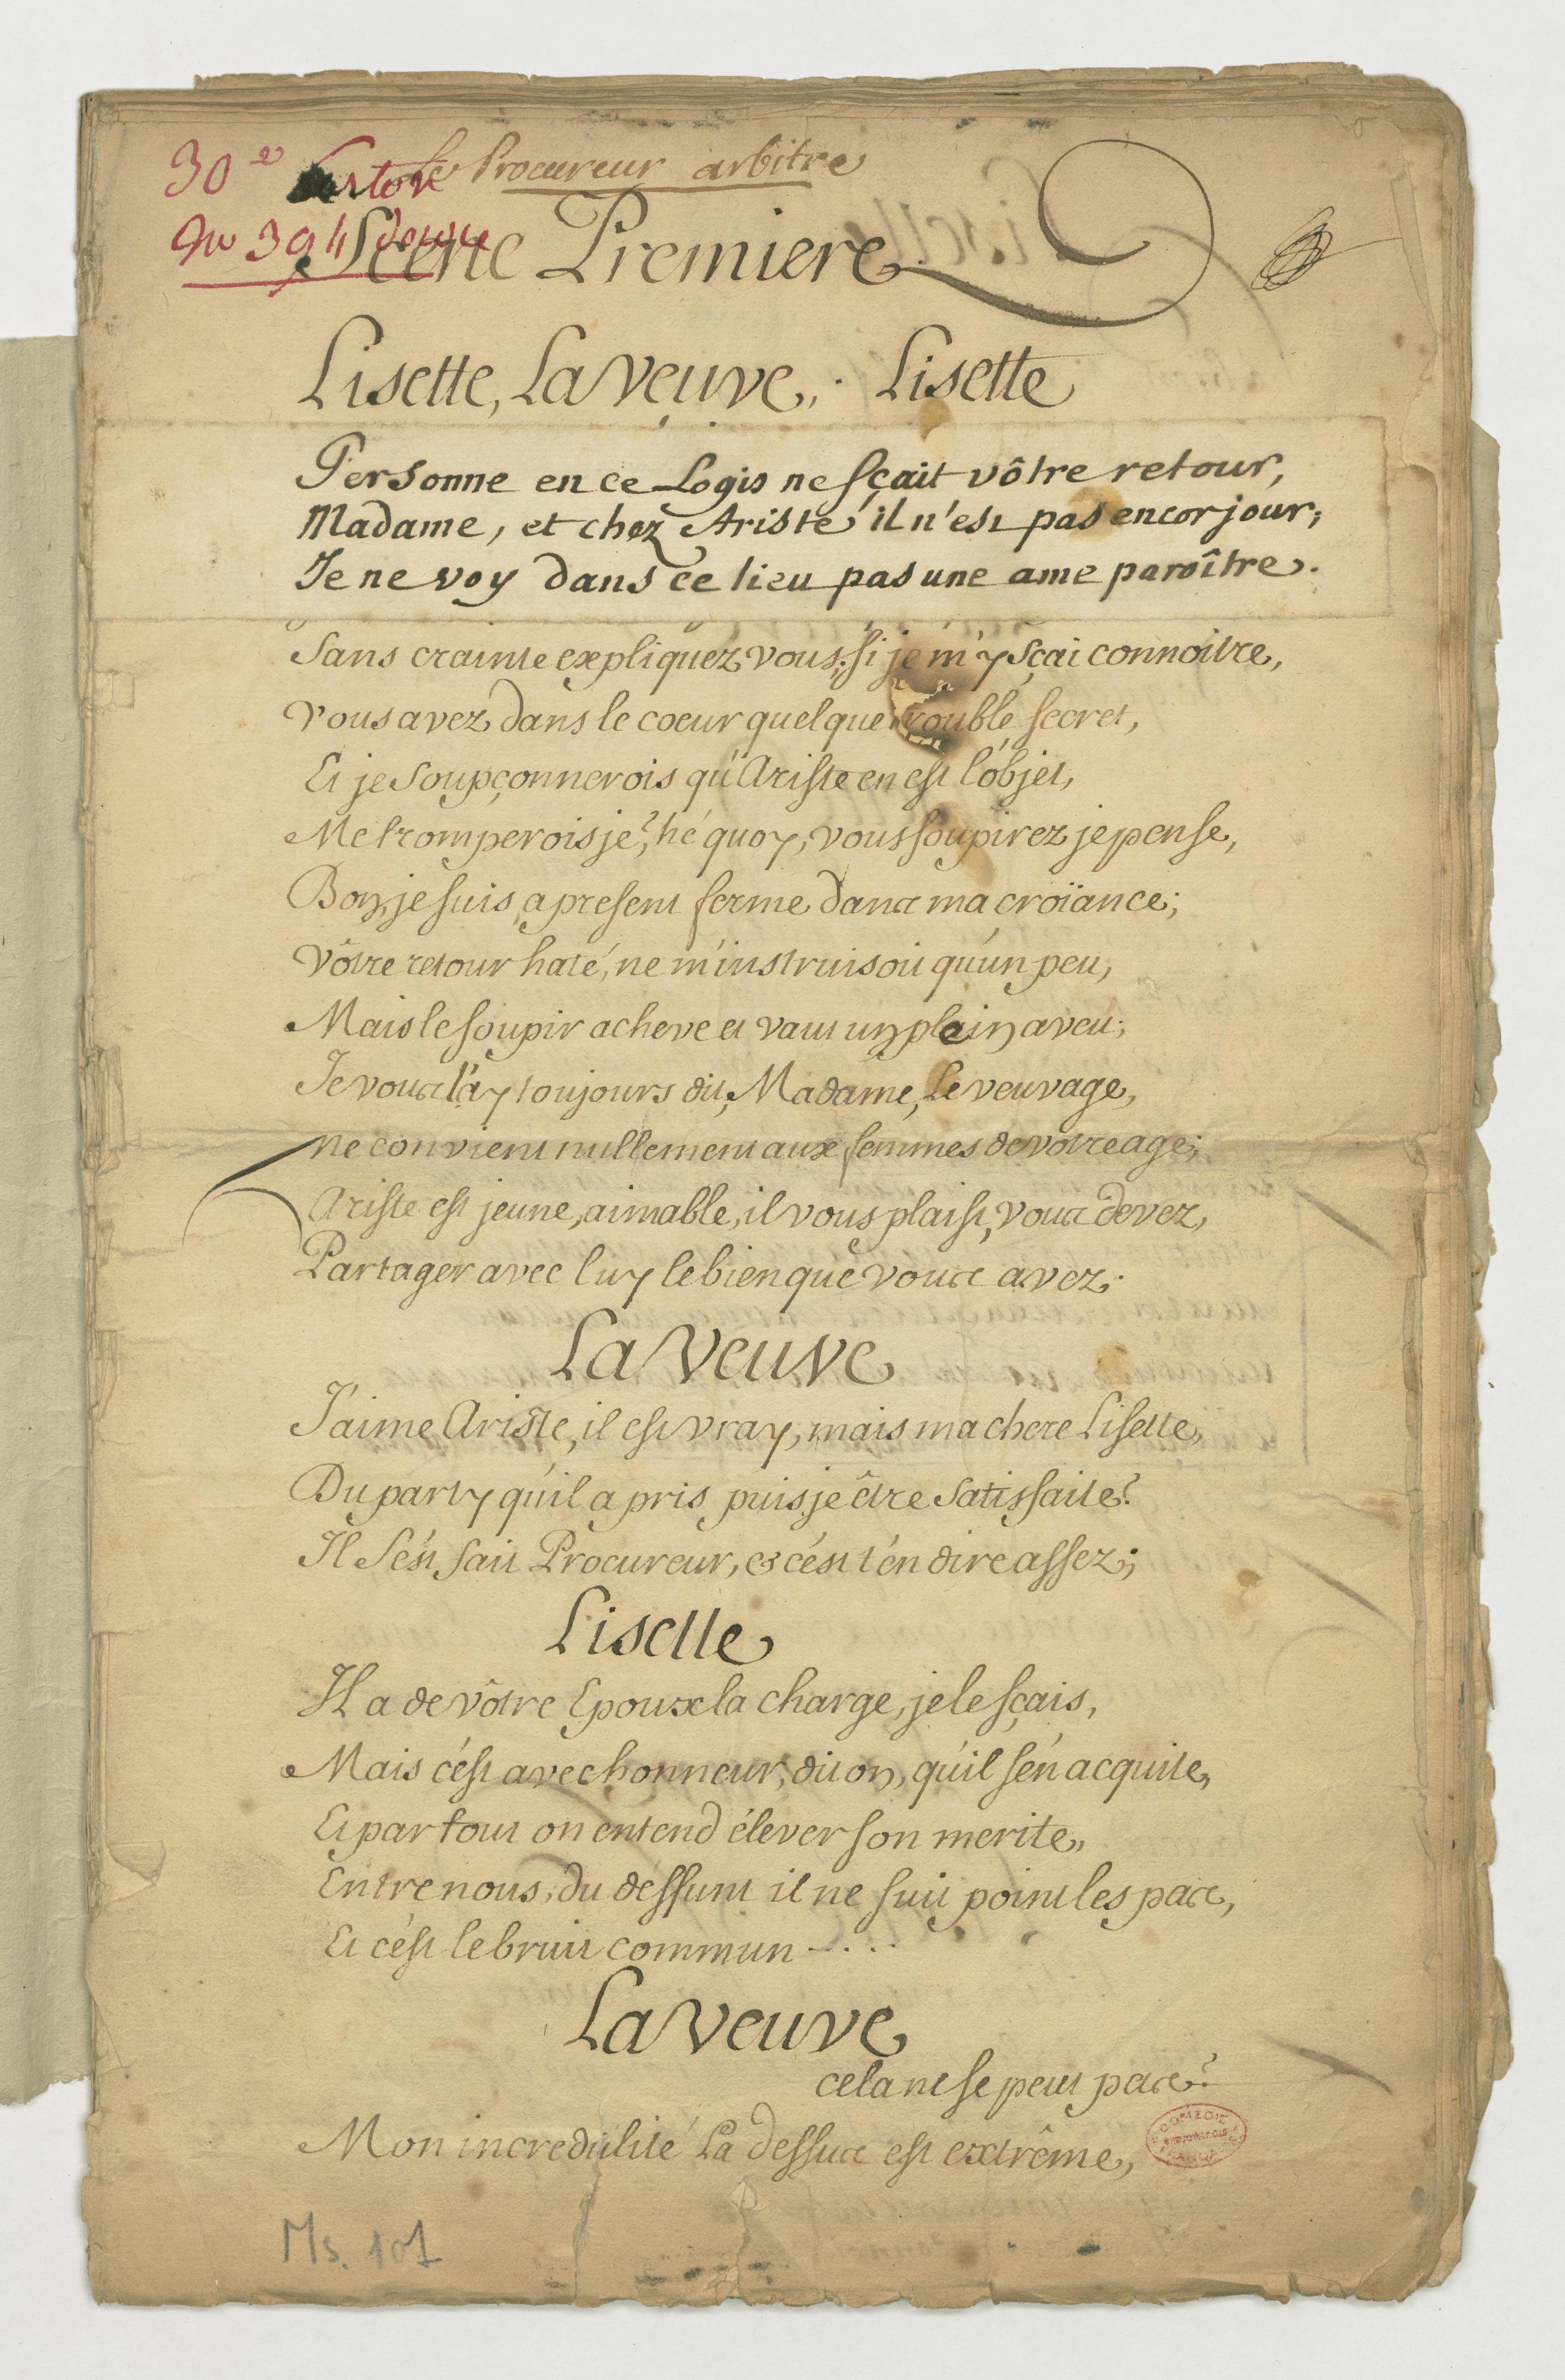 30e Carton
Le Procureur arbitre
Nº 394
Scene Premiere
Lisette, La Veuve, Lisette
Personne en ce Logis ne sçait vôtre retour,
Madame, et chez Ariste il n'est pas encor jour;
Je ne voy dans ce lieu pas une ame paroître.
Sans crainte expliquez vous; si je m'y sçai connoître,
Vous avez dans le coeur quelque trouble secret,
Et je soupçonnerois qu'Ariste en est l'objet,
Me tromperois je? hé quoy, vous soupirez je pense,
Bon, je suis a present ferme dans ma croïance;
Vôtre retour haté, ne m'instruisoit qu'un peu,
Mais le soupir acheve et vaut un plein aveu;
Je vous l'ay toujours dit, Madame, le veuvage,
ne convient nullement aux femmes de vôtre age;
Ariste est jeune, aimable, il vous plaist, vous devez,
Partager avec luy le bien que vous avez;
La Veuve
J'aime Ariste, il est vray, mais ma chere Lisette,
Du party qu'il a pris puis je être satisfaite?
Il s'est fait Procureur, & c'est t'en dire assez;
Lisette
Il a de vôtre Epoux la charge, je le sçais,
Mais c'est avec honneur, dit on, qu'il s'en acquite,
Et par tout on entend élever son merite,
Entre nous, du deffunt il ne suit point les pas,
Et c'est le bruit commun ....
La Veuve
cela ne se peut pas?
Mon incredulité La dessus est extrême,
COMÉDIE
FRANÇAISE
Ms. 101